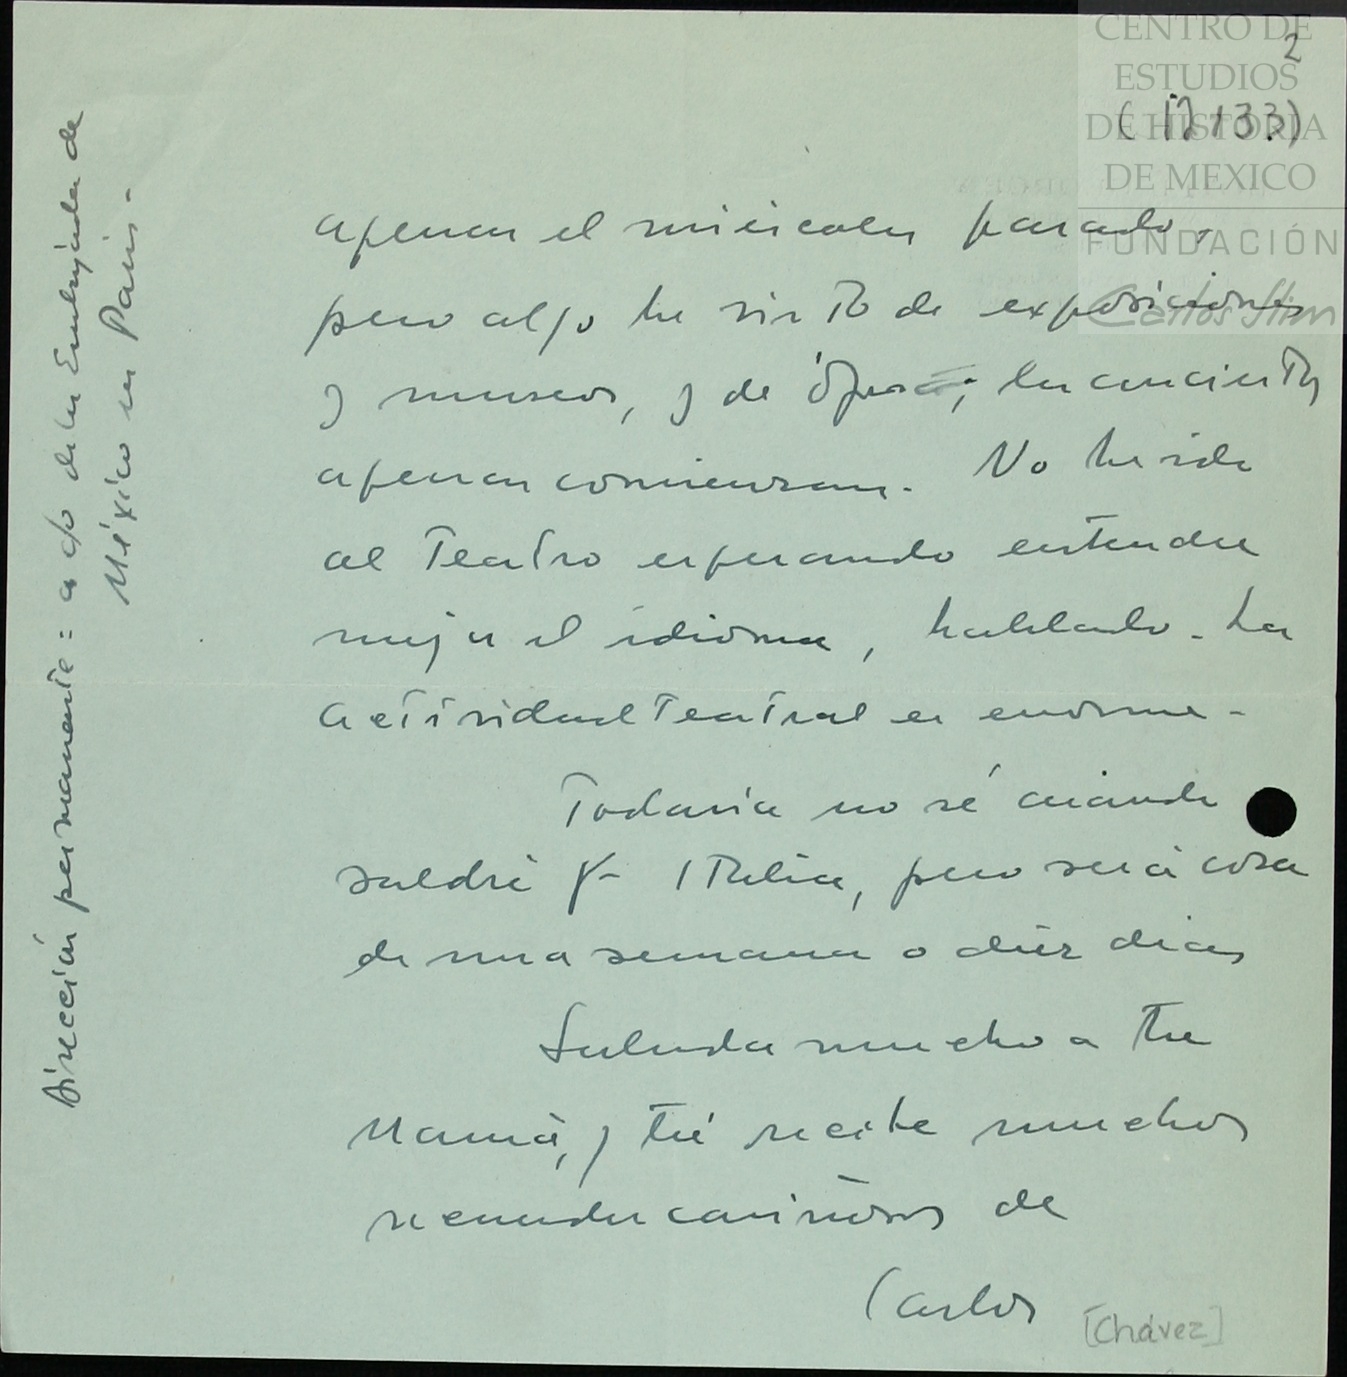 CENTRO DE
ESTUDIOS
DE HISTORIA
DE MEXICO
FUNDACIÓN
Carlos Slim
2
apenas el miércoles pasado,
pero algo he visto de exposiciones
y museos, y de ópera; los conciertos
apenas comienzan. No he ido
al Teatro esperando entender
mejor el idioma, hablado. La
actividad Teatral es enorme.
Todavía no sé cuándo
saldré p- Italia, pero será cosa
de una semana o diez días
Saluda mucho a tu
Mamá, y tú recibe muchos
recuerdos cariñosos de
Carlos
[Chávez]
Dirección permanente: a c/o de la Embajada de
México en Paris.